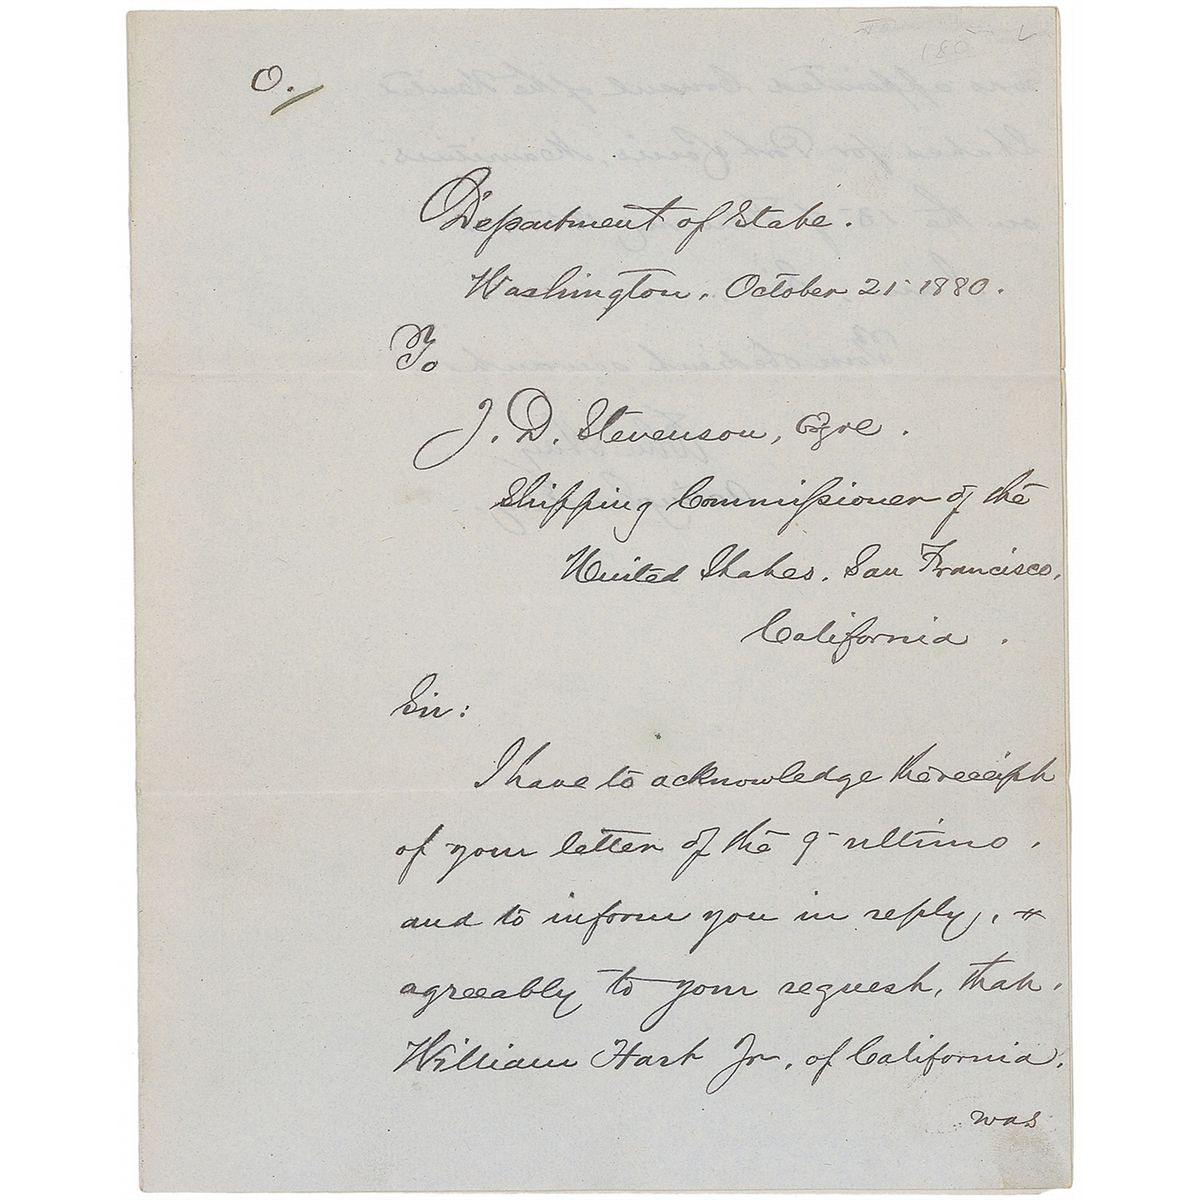 O.
Department of State.
Washington, October 21 1880.
To
J. D. Stevenson, Esqre.
Shipping Commissioner of the
United States, San Francisco,
California.
Sir:
I have to acknowledge the receipt
of your letter of the 9 ultimo,
and to inform you in reply,
agreeably to your request, that,
William Hart Jr. of California,
was